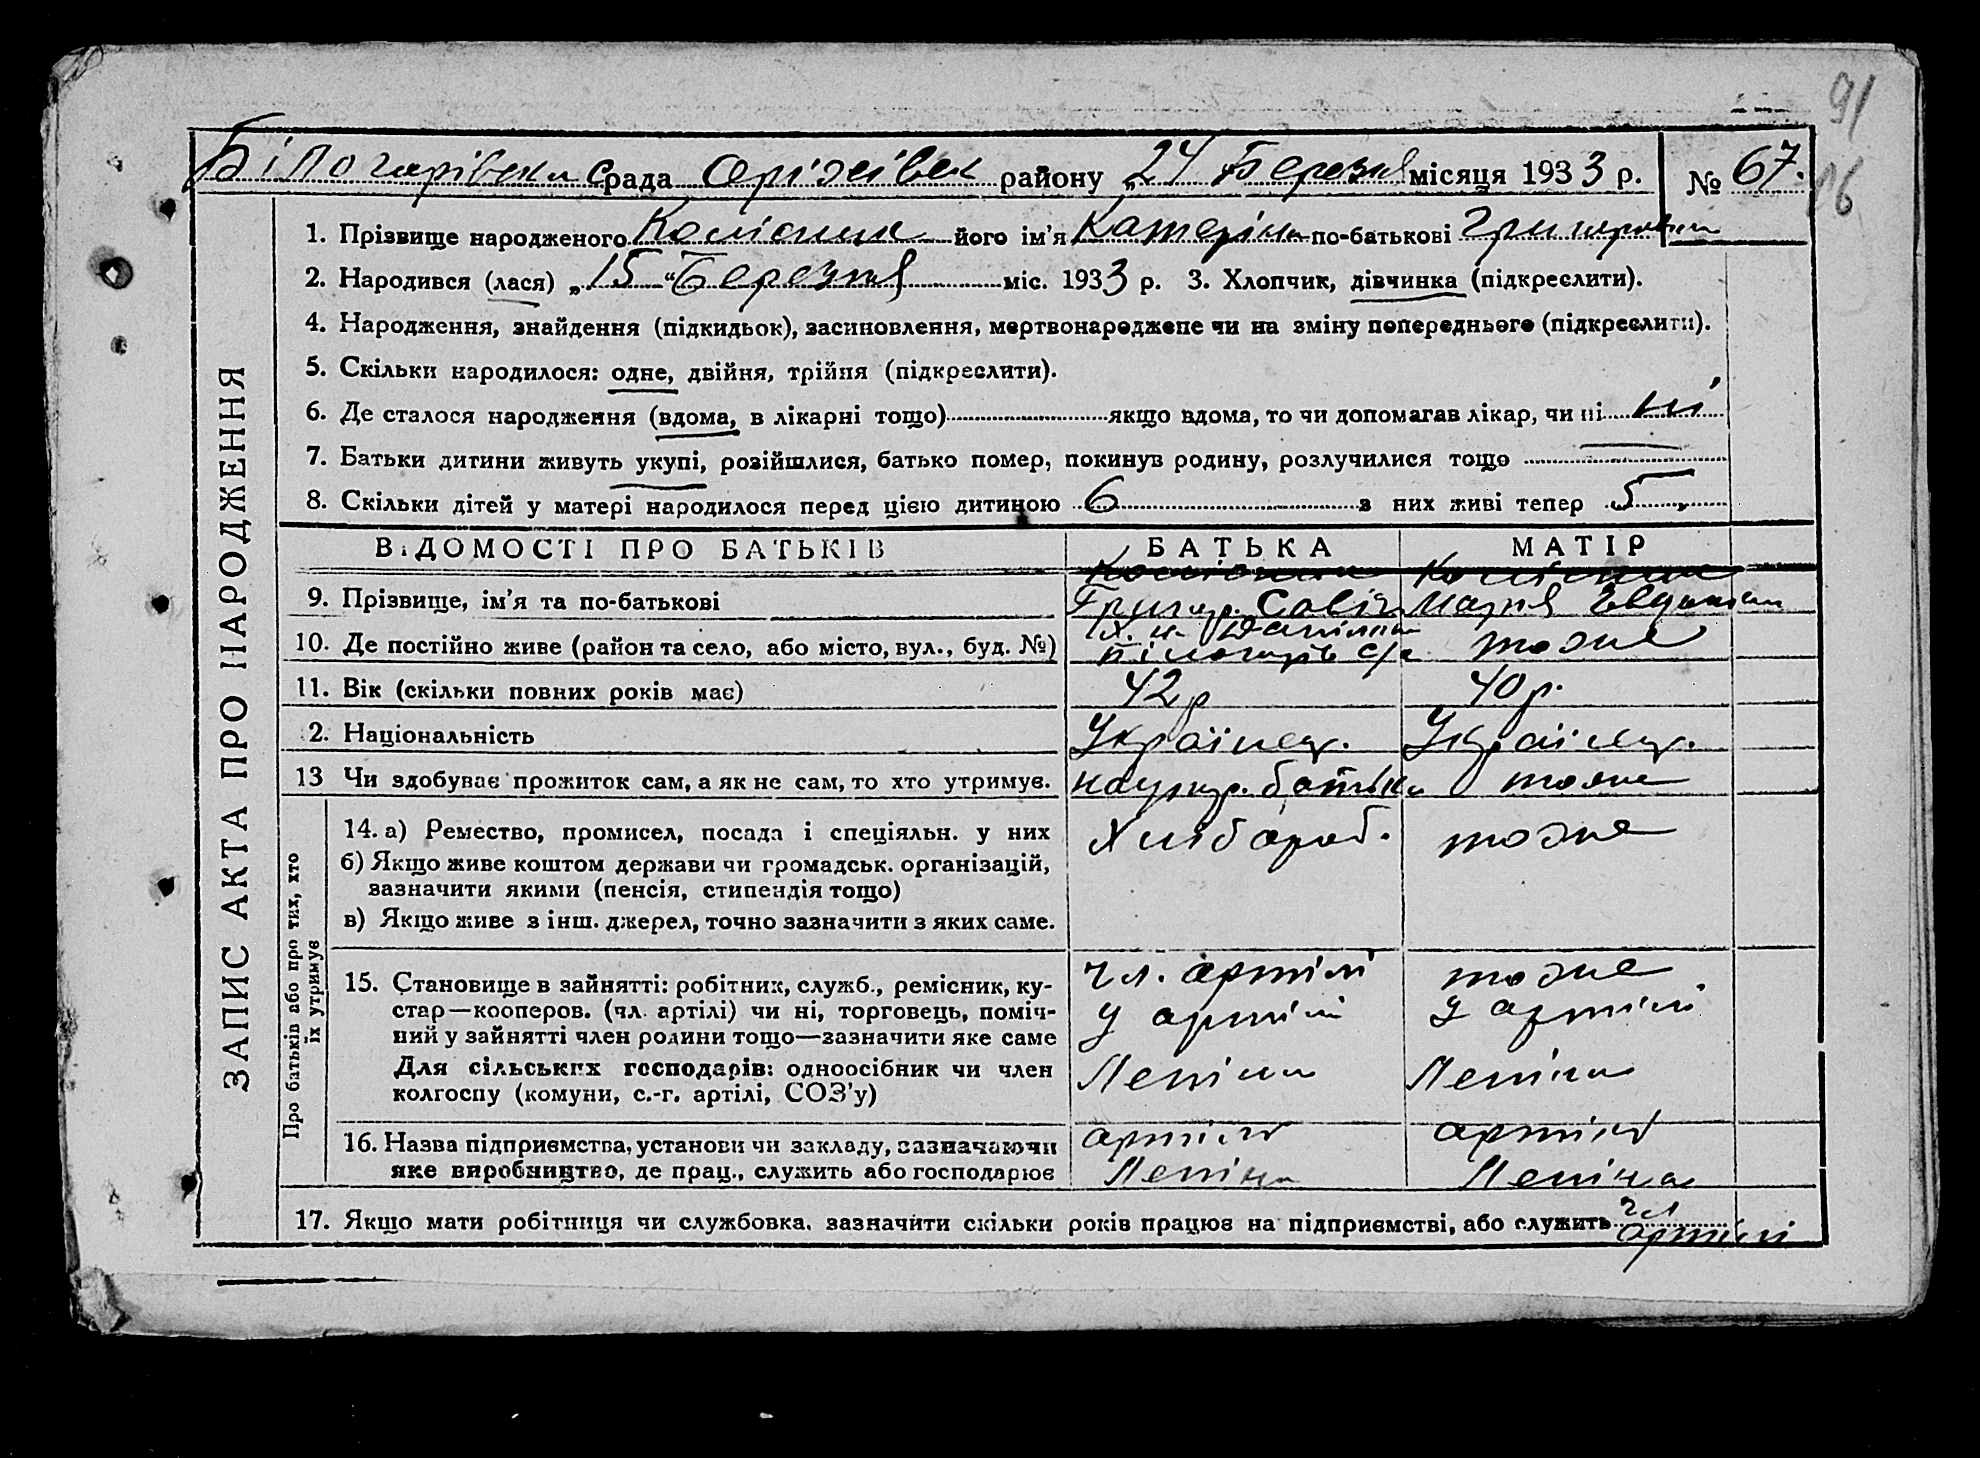 91
16
Білогарівська Срада Оріжівськ району „24 Березня місяця 1933 р. № 67.
ЗАПИС АКТА ПРО НАРОДЖЕННЯ
1. Прізвище народженого Колісник його ім'я Катеріна по-батькові Григоровна
2. Народився (лася) „15 “ Березня міс. 1933 р. 3. Хлопчик, дівчинка (підкреслити).
4. Народження, знайдення (підкидьок), засиновлення, мертвонароджене чи на зміну попереднього (підкреслити).
5. Скільки народилося: одне, двійня, трійня (підкреслити).
6. Де сталося народження (вдома, в лікарні тощо) якщо вдома, то чи допомагав лікар, чи ні ні
7. Батьки дитини живуть укупі, розійшлися, батько помер, покинув родину, розлучилися тощо
8. Скільки дітей у матері народилося перед цією дитиною 6 з них живі тепер 5
ВІДОМОСТІ ПРО БАТЬКІВ БАТЬКА МАТІР
Колісник Колісник
9. Прізвище, ім'я та по-батькові Григор. Савіч Мария
10. Де постійно живе (район та село, або місто, вул., буд. №) Білогарів с/р тоже
11. Вік (скільки повних років має) 42р 40р.
2. Національність Українец. Українец.
13 Чи здобуває прожиток сам, а як не сам, то хто утримує. батька тоже
Про батьків або про тих, хто їх утримує
14. а) Ремество, промисел, посада і спеціяльн. у них Хлібороб. тоже
б) Якщо живе коштом держави чи громадськ. організацій,
зазначити якими (пенсія, стипендія тощо)
в) Якщо живе з інш. джерел, точно зазначити з яких саме.
15. Становище в зайнятті: робітник, служб., ремісник, ку- чл. артілі тоже
стар—кооперов. (чл. артілі) чи ні, торговець, поміч- у артілі у артілі
ний у зайнятті член родини тощо—зазначити яке саме
Для сільських господарів: одноосібник чи член Леніна Леніна
колгоспу (комуни, с.-г. артілі, СОЗ'у)
16. Назва підприємства, установи чи закладу, зазначаючи артіль артіль
яке виробництво, де прац., служить або господарює Леніна Леніна
17. Якщо мати робітниця чи службовка, зазначити скільки років працює на підприємстві, або служить чл
артілі